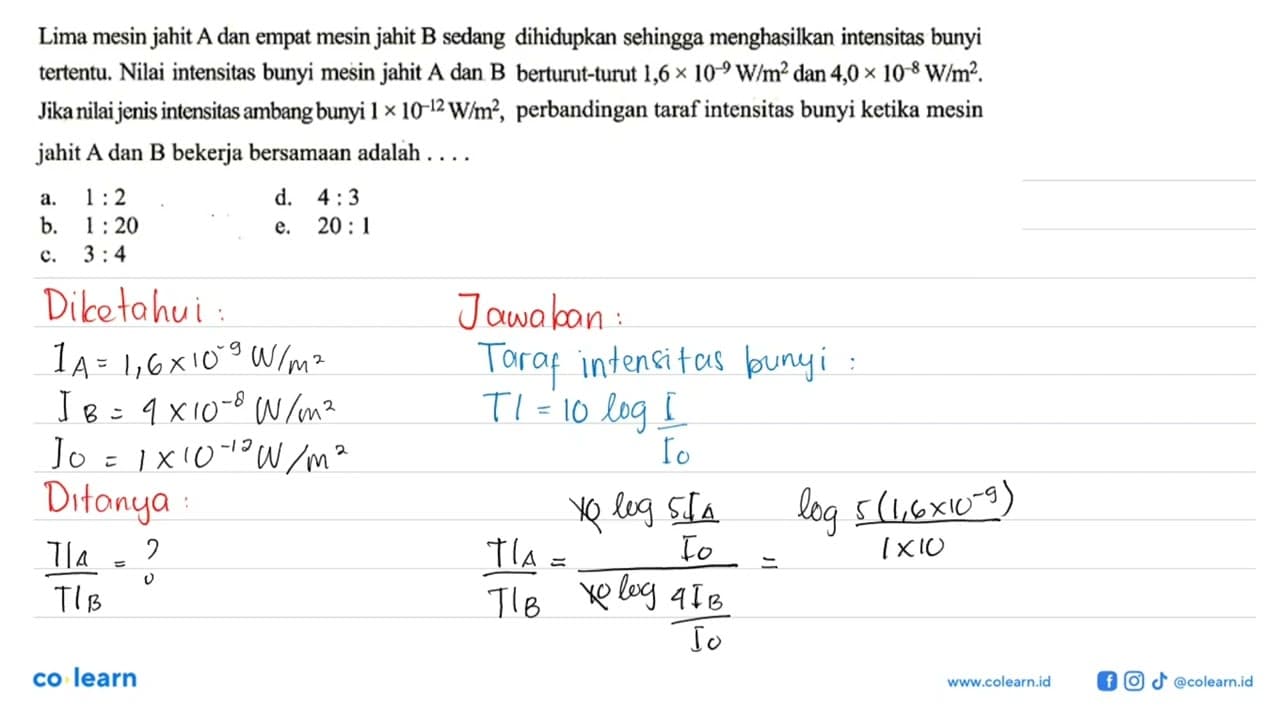 Lima mesin jahit A dan empat mesin jahit B sedang dihidupkan sehingga menghasilkan intensitas bunyi
tertentu. Nilai intensitas bunyi mesin jahit A dan B berturut-turut 1,6 × 10⁻⁹ W/m² dan 4,0 × 10⁻⁸ W/m².
Jika nilai jenis intensitas ambang bunyi 1 × 10⁻¹² W/m², perbandingan taraf intensitas bunyi ketika mesin
jahit A dan B bekerja bersamaan adalah . . . .
a. 1 : 2 d. 4 : 3
b. 1 : 20 e. 20 : 1
c. 3 : 4
Diketahui :
I_A = 1,6 × 10⁻⁹ W/m²
I_B = 4 × 10⁻⁸ W/m²
I_0 = 1 × 10⁻¹² W/m²
Ditanya :
TI_A / TI_B = ?
Jawaban :
Taraf intensitas bunyi :
TI = 10 log I / I_0
TI_A / TI_B = (10 log 5I_A / I_0) / (10 log 4I_B / I_0) = log 5(1,6×10⁻⁹) / 1×10
co learn
www.colearn.id
@colearn.id